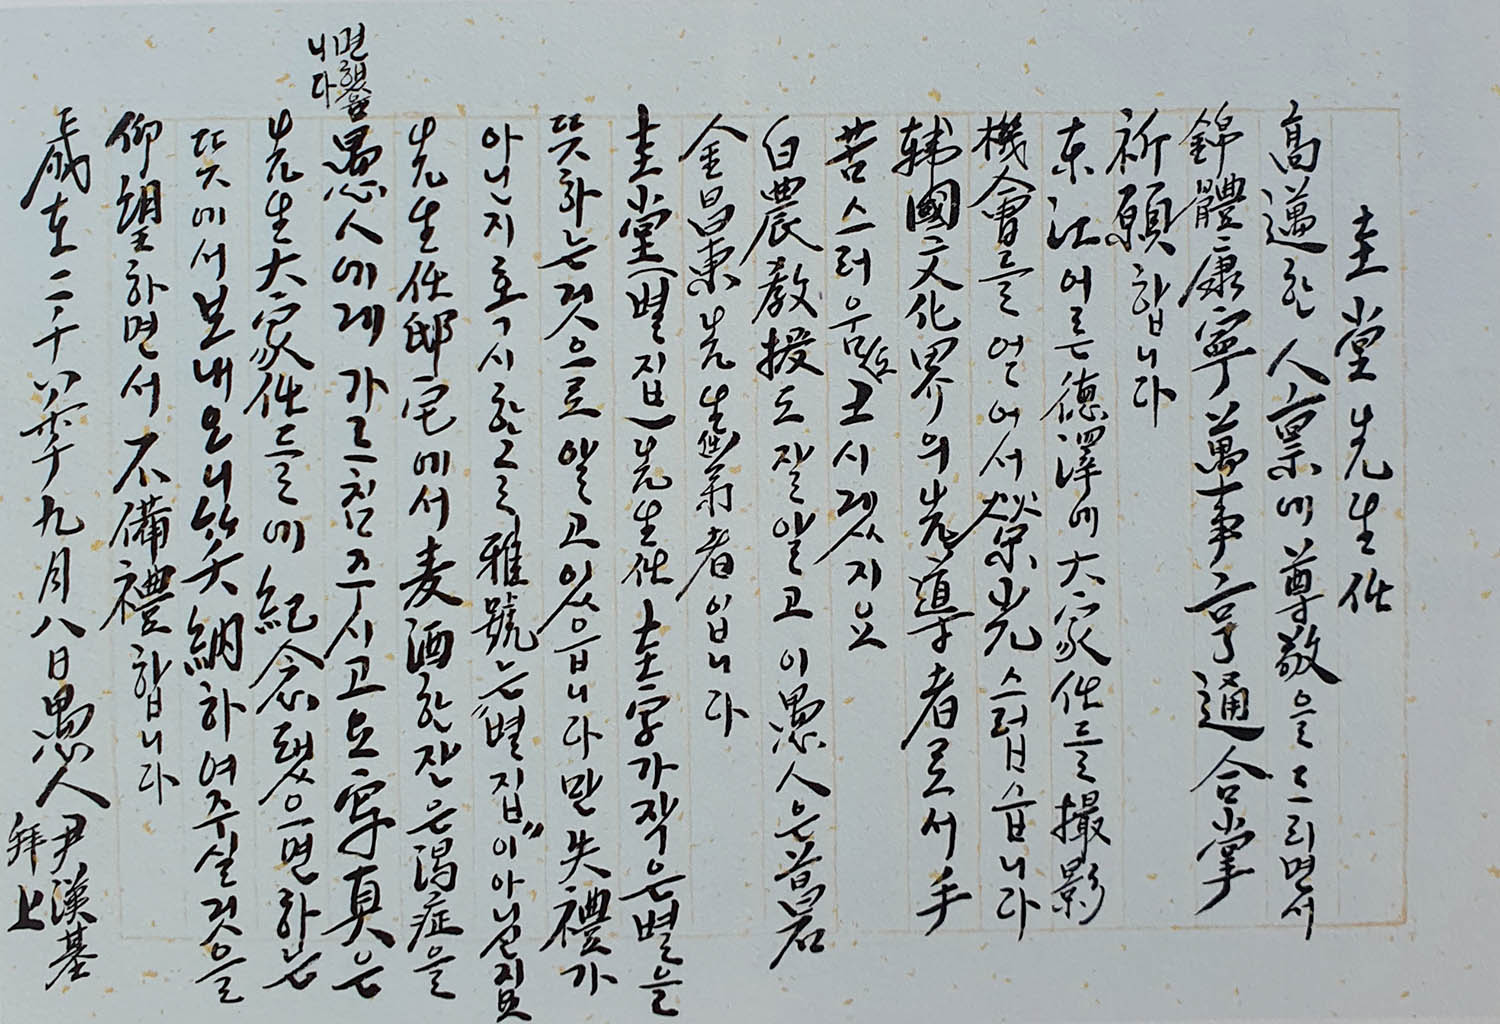 圭堂先生任
高邁한 人稟에 尊敬을 드리면서
錦體康寧 萬事亨通 合掌
祈願합니다
東江어른 德澤에 大家任들 撮影
機會를 얻어서 榮光스럽습니다
韓國文化界의 先導者로서 手
苦스러움도 크시겠지요
白農敎授도 잘 알고 이 愚人은 菖石
金昌東先生任 弟者입니다
圭堂(별집) 先生任 圭字가 작은 별을
뜻하는 것으로 알고 있읍니다만 失禮가
아닌지 혹시 한그루 雅號는 “별집”이 아닌지요
先生任邸宅에서 麦酒한잔은 渴症을
면했읍니다
愚人에게 가르침 주시고요 寫真은
先生大家任들에 紀念됐으면 하는
뜻에서 보내오니 笑納하여 주실것을
仰望하면서 不備禮합니다
歲在二千八年九月八日 愚人 尹漢基
拜上